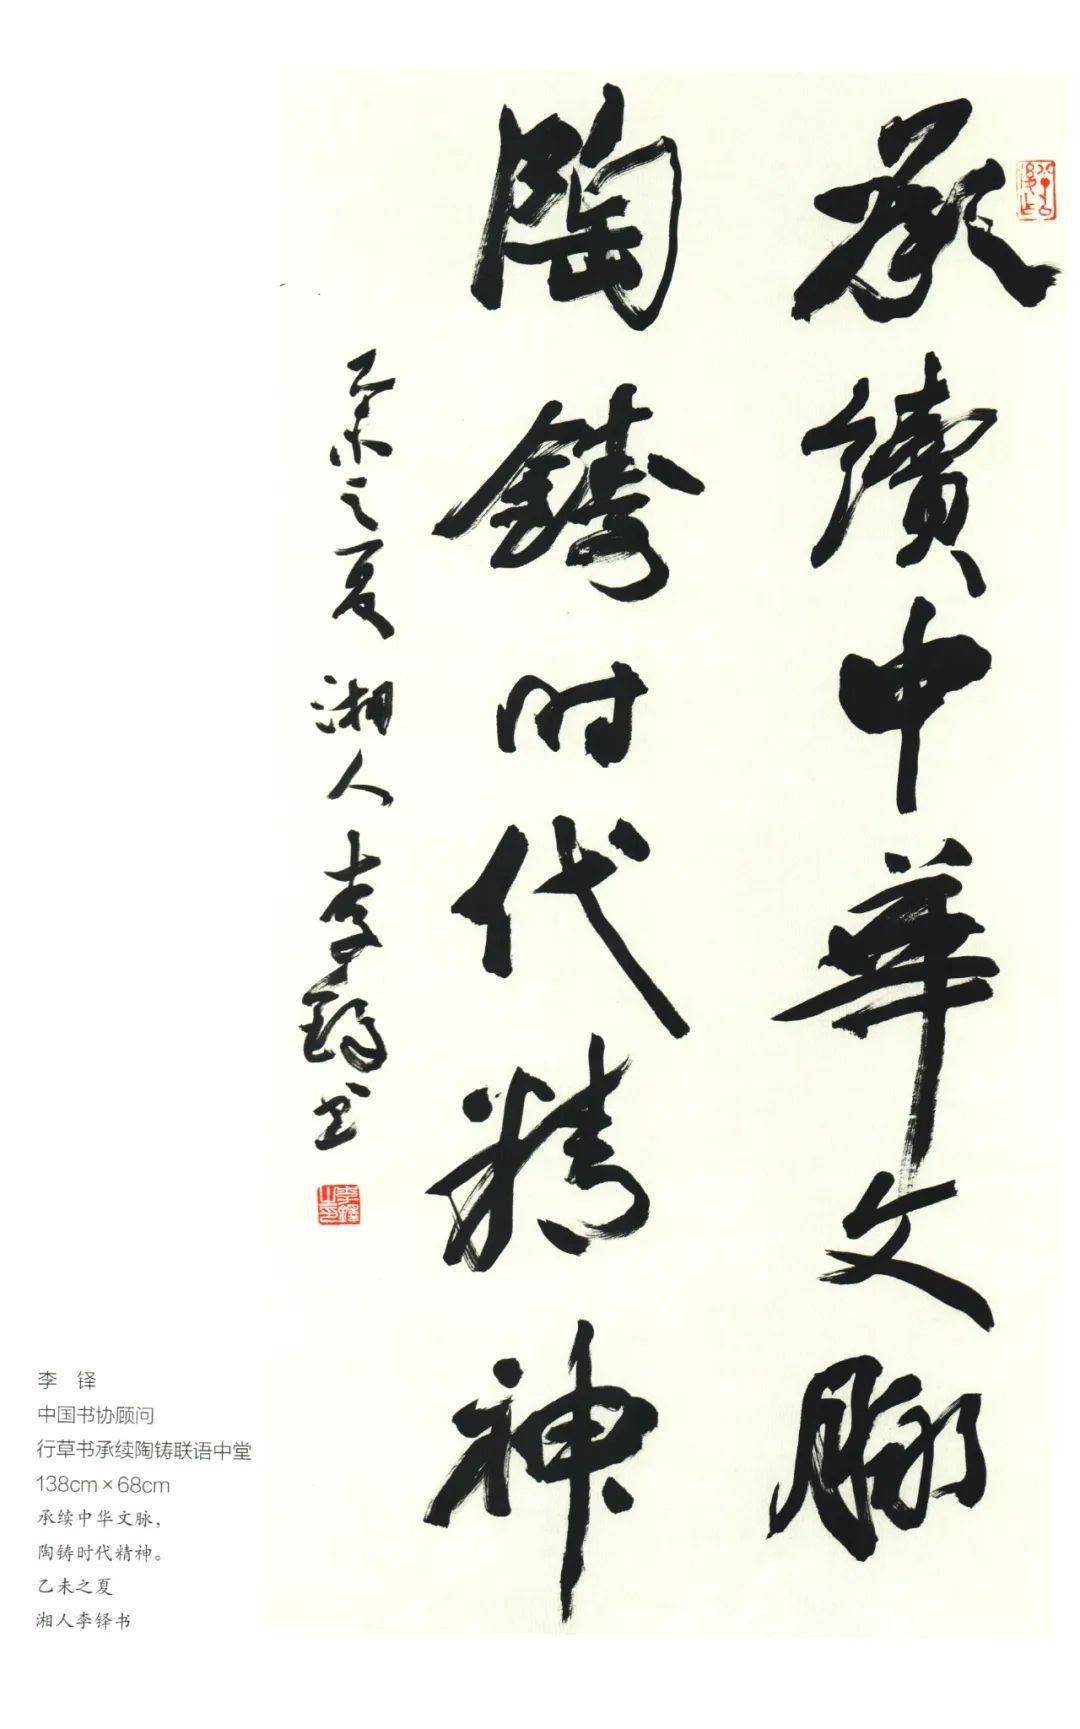 承續中華文脈
陶鑄时代精神
乙未之夏 湘人李鐸书
李鐸之印
李 铎
中国书协顾问
行草书承续陶铸联语中堂
138cm×68cm
承续中华文脉，
陶铸时代精神。
乙未之夏
湘人李铎书